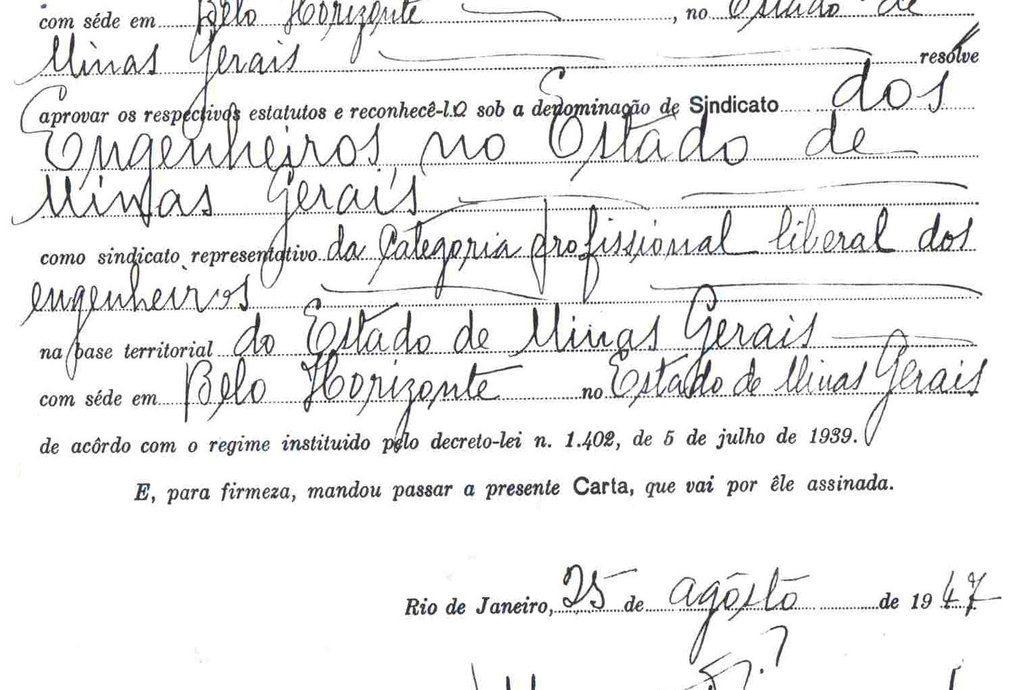 com séde em Belo Horizonte, no Estado de
Minas Gerais resolve
aprovar os respectivos estatutos e reconhecê-lo sob a denominação de Sindicato dos
Engenheiros no Estado de
Minas Gerais
como sindicato representativo da categoria profissional liberal dos
engenheiros
na base territorial do Estado de Minas Gerais
com séde em Belo Horizonte no Estado de Minas Gerais
de acôrdo com o regime instituido pelo decreto-lei n. 1.402, de 5 de julho de 1939.
E, para firmeza, mandou passar a presente Carta, que vai por êle assinada.
Rio de Janeiro, 25 de agôsto de 1947